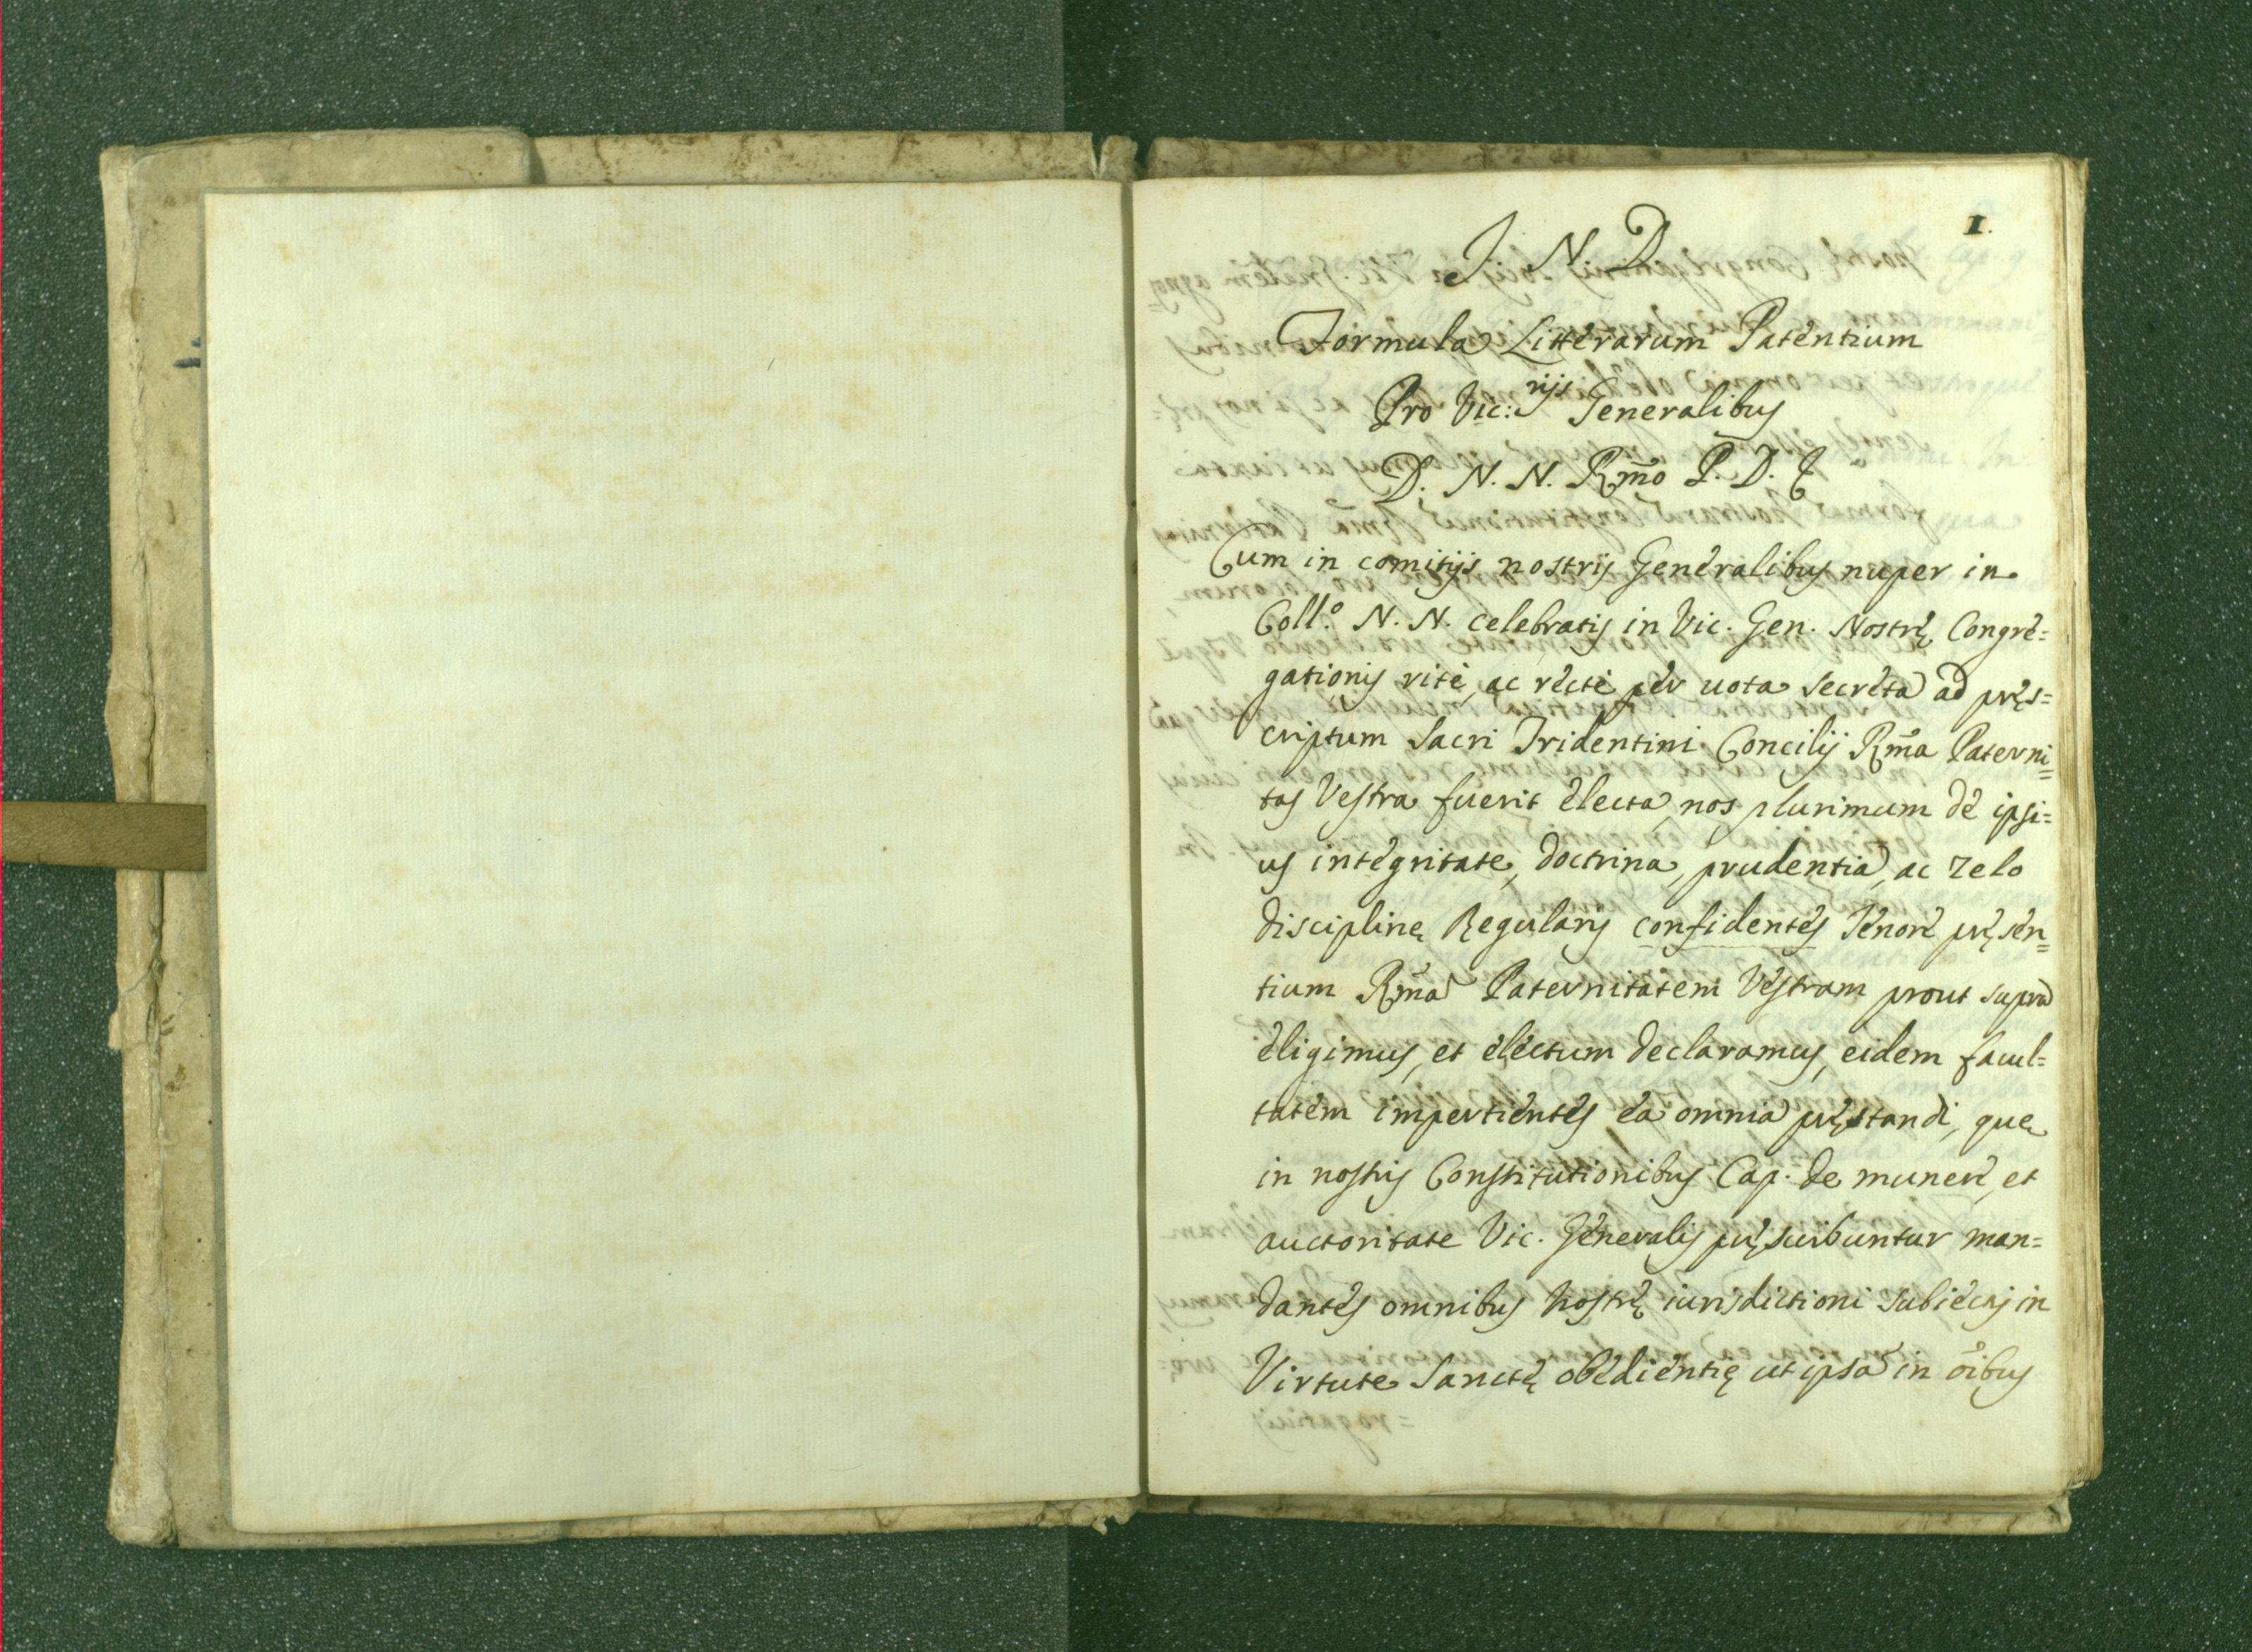 1.
I N D
Formula Litterarum Patentium
Pro Vic:rijs Generalibus
D. N. N. Rm̃o P. D. &
Cum in comitijs nostris Generalibus nuper in
Coll.º N. N. celebratis in Vic. Gen. Nostrę Congre=
gationis rite, ac recte per uota secreta ad pręs=
criptum Sacri Tridentini Concilij Rm̃a Paterni=
tas Vestra fuerit electa, nos plurimum de ipsi=
us integritate, doctrina, prudentia, ac zelo
disciplinę Regularis confidentes Tenore pręsen=
tium Rm̃a Paternitatem Vestram prout supra
eligimus, et electum declaramus, eidem facul=
tatem impertientes ea omnia pręstandi, quę
in nostris Constitutionibus Cap. de munere, et
auctoritate Vic. Generalis pręscribuntur man=
dantes omnibus Nostrę iurisdictioni subiectis in
Virtute Sanctę obedientię ut ipsa in oĩbus